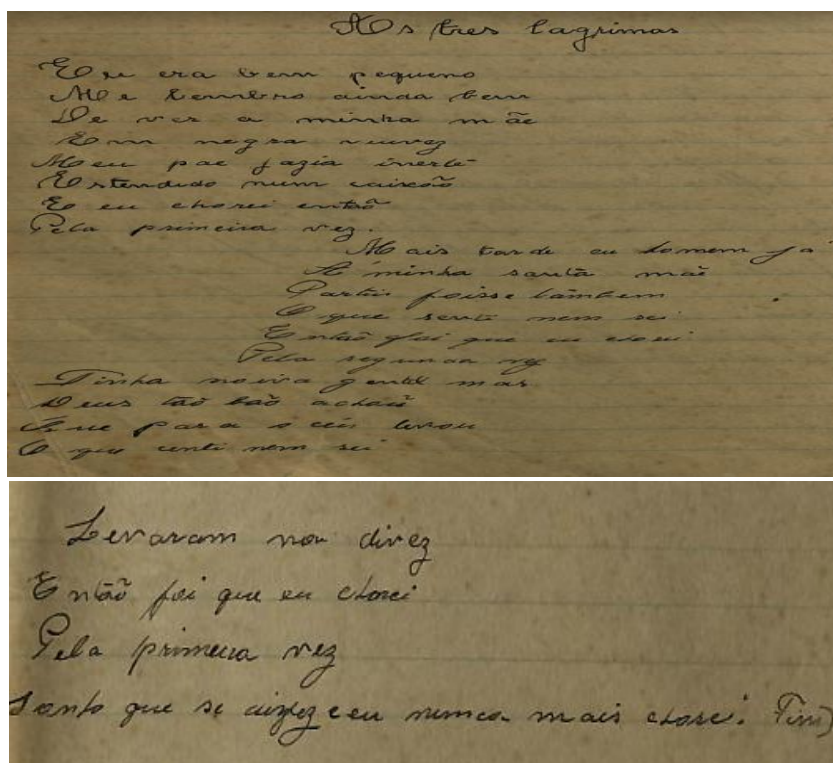 As tres lagrimas
Eu era bem pequeno
Me lembro ainda bem
De ver a minha mãe
Em negra viuvez
Meu pae jazia inerte
Estendido num caixão
E eu chorei então
Pela primeira vez.
Mais tarde eu homem já
A minha santa mãe
Partir foisse também
O que senti nem sei
Então foi que eu chorei
Pela segunda vez
Tinha noiva gentil mas
Deus tão boa achou
Que para o céu levou
O que centi nem sei
Levaram na divez
Então foi que eu chorei
Pela primeira vez
Santo que se eu nunca mais chorei. Fim)